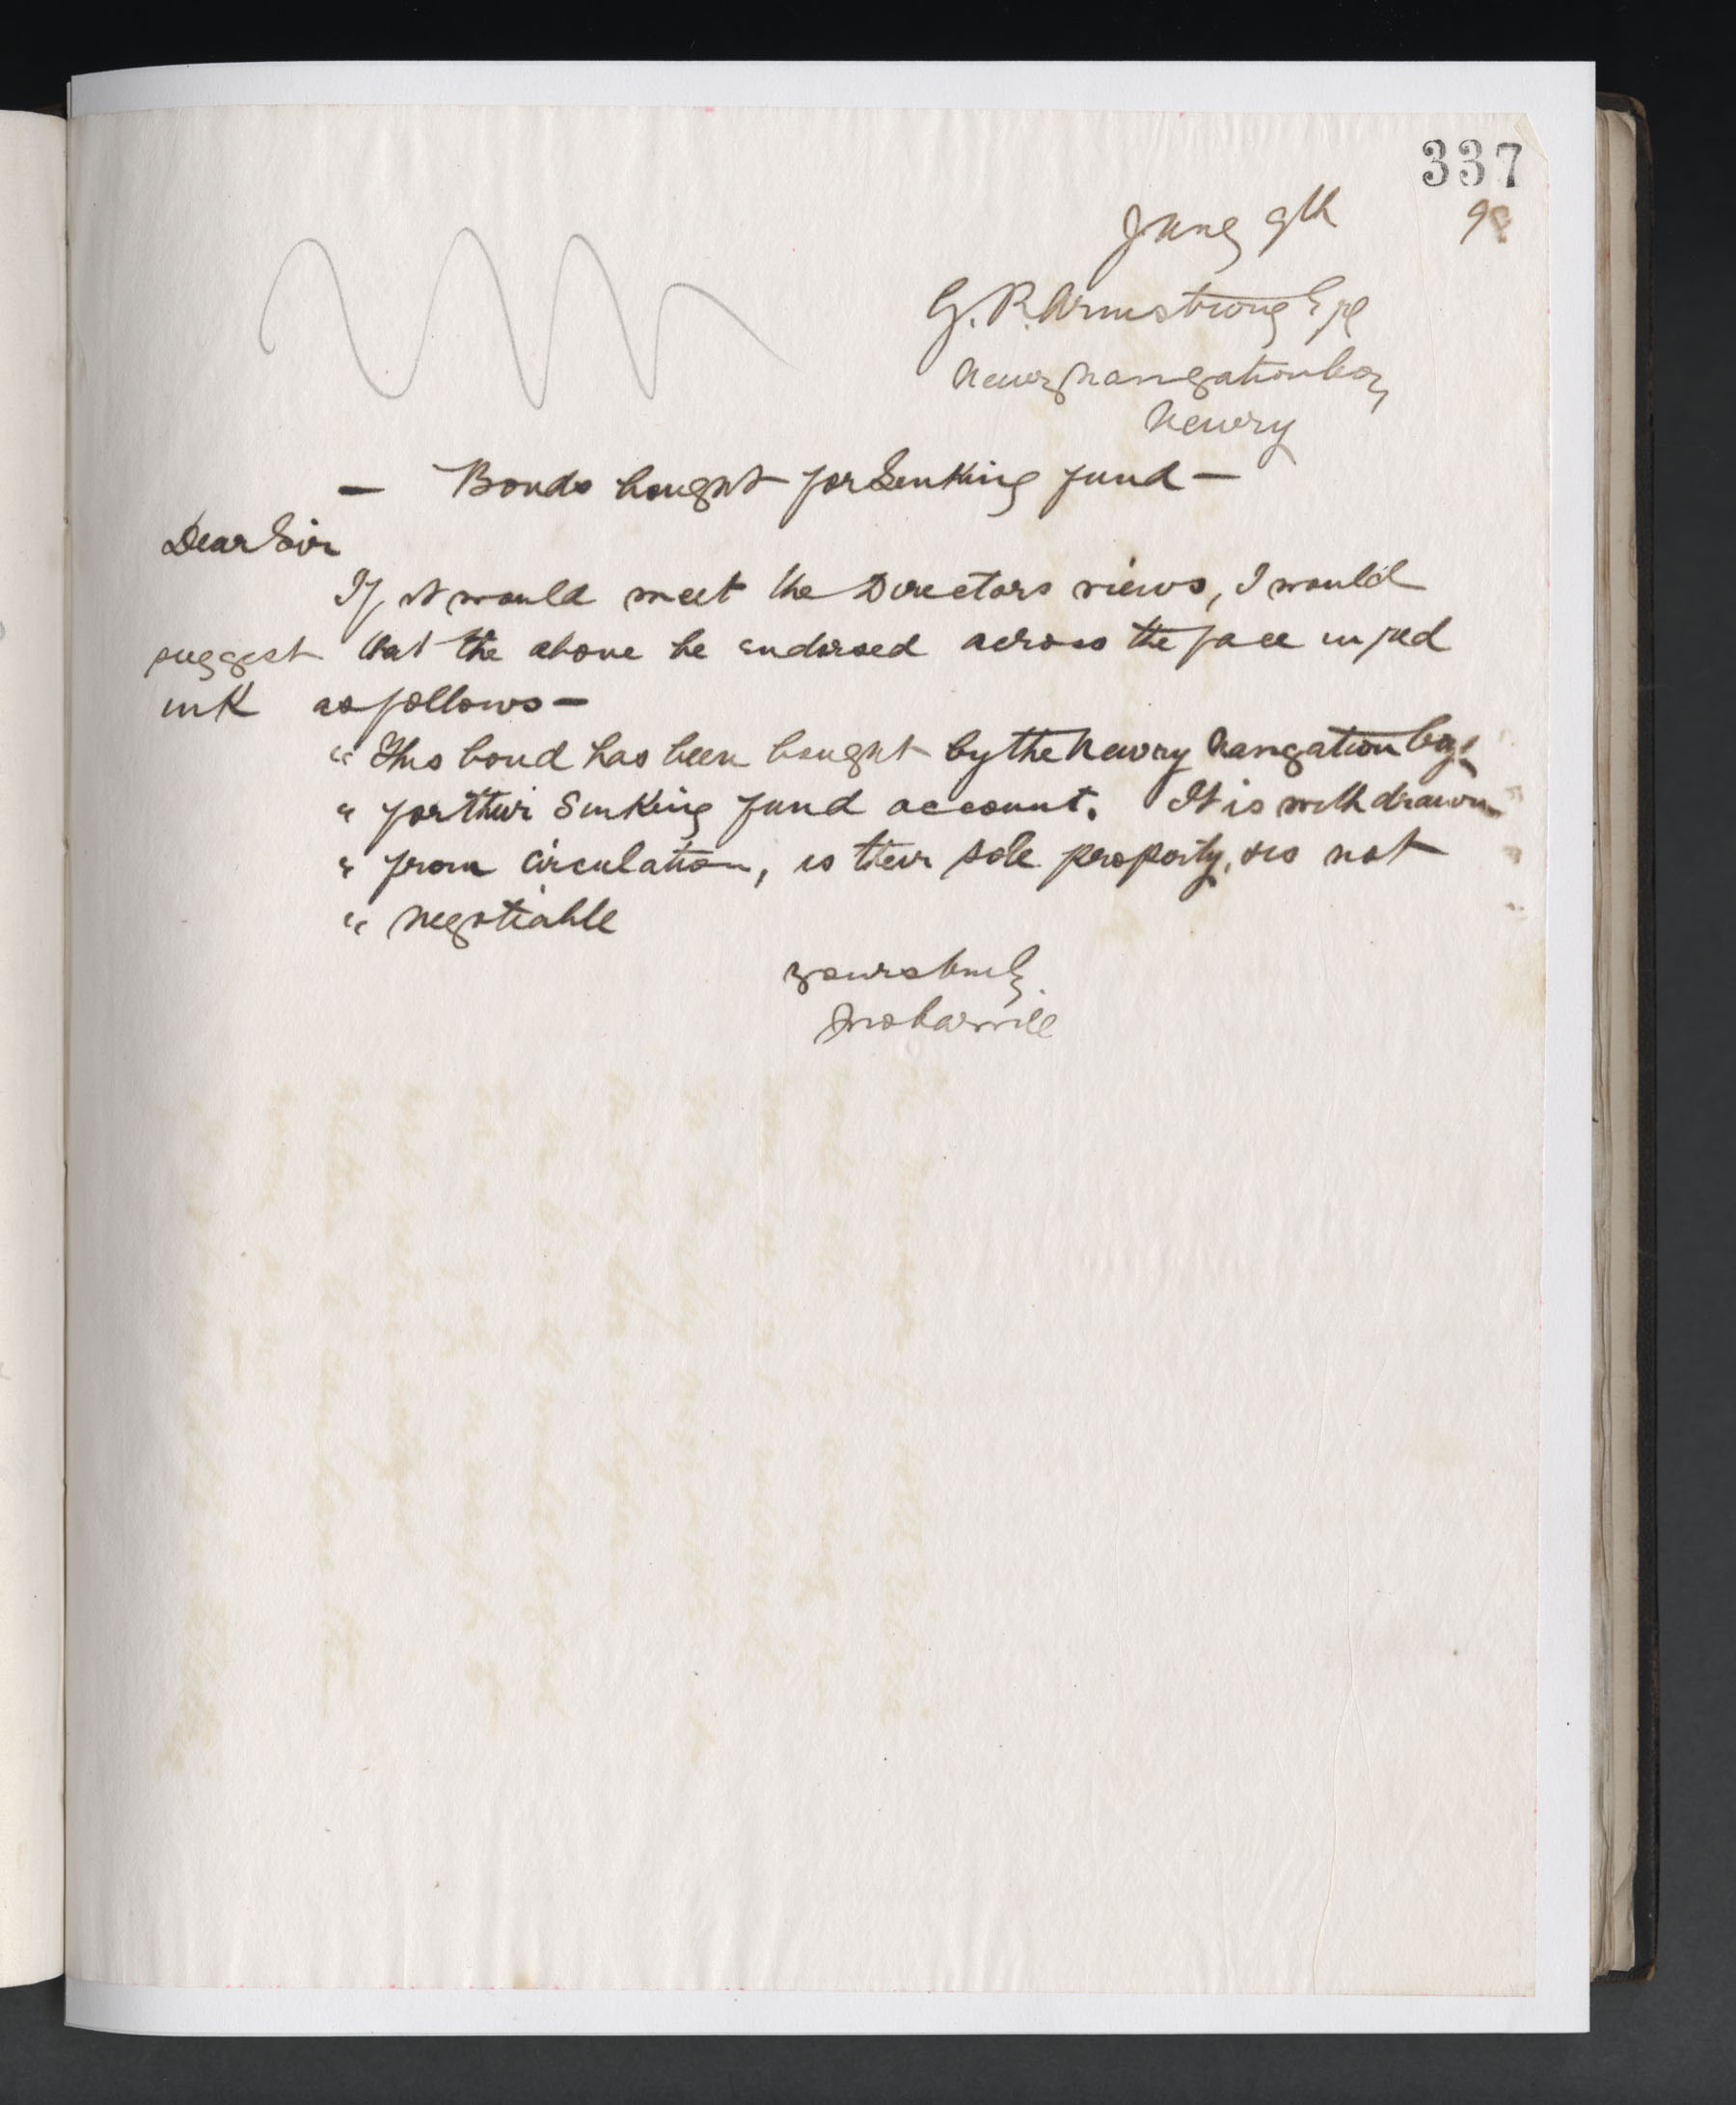 337
June 9th 98
G. R. Armstrong Esq
Newry Navigation Coy
Newry
— Bonds bought for Sinking fund —
Dear Sir
If it would meet the Directors views, I would
suggest that the above be endorsed across the face in red
ink as follows —
" This bond has been bought by the Newry Navigation Coy
" for their Sinking fund account. It is withdrawn
" from circulation, is their sole property, & is not
" negotiable
Yours truly
Jno Barville